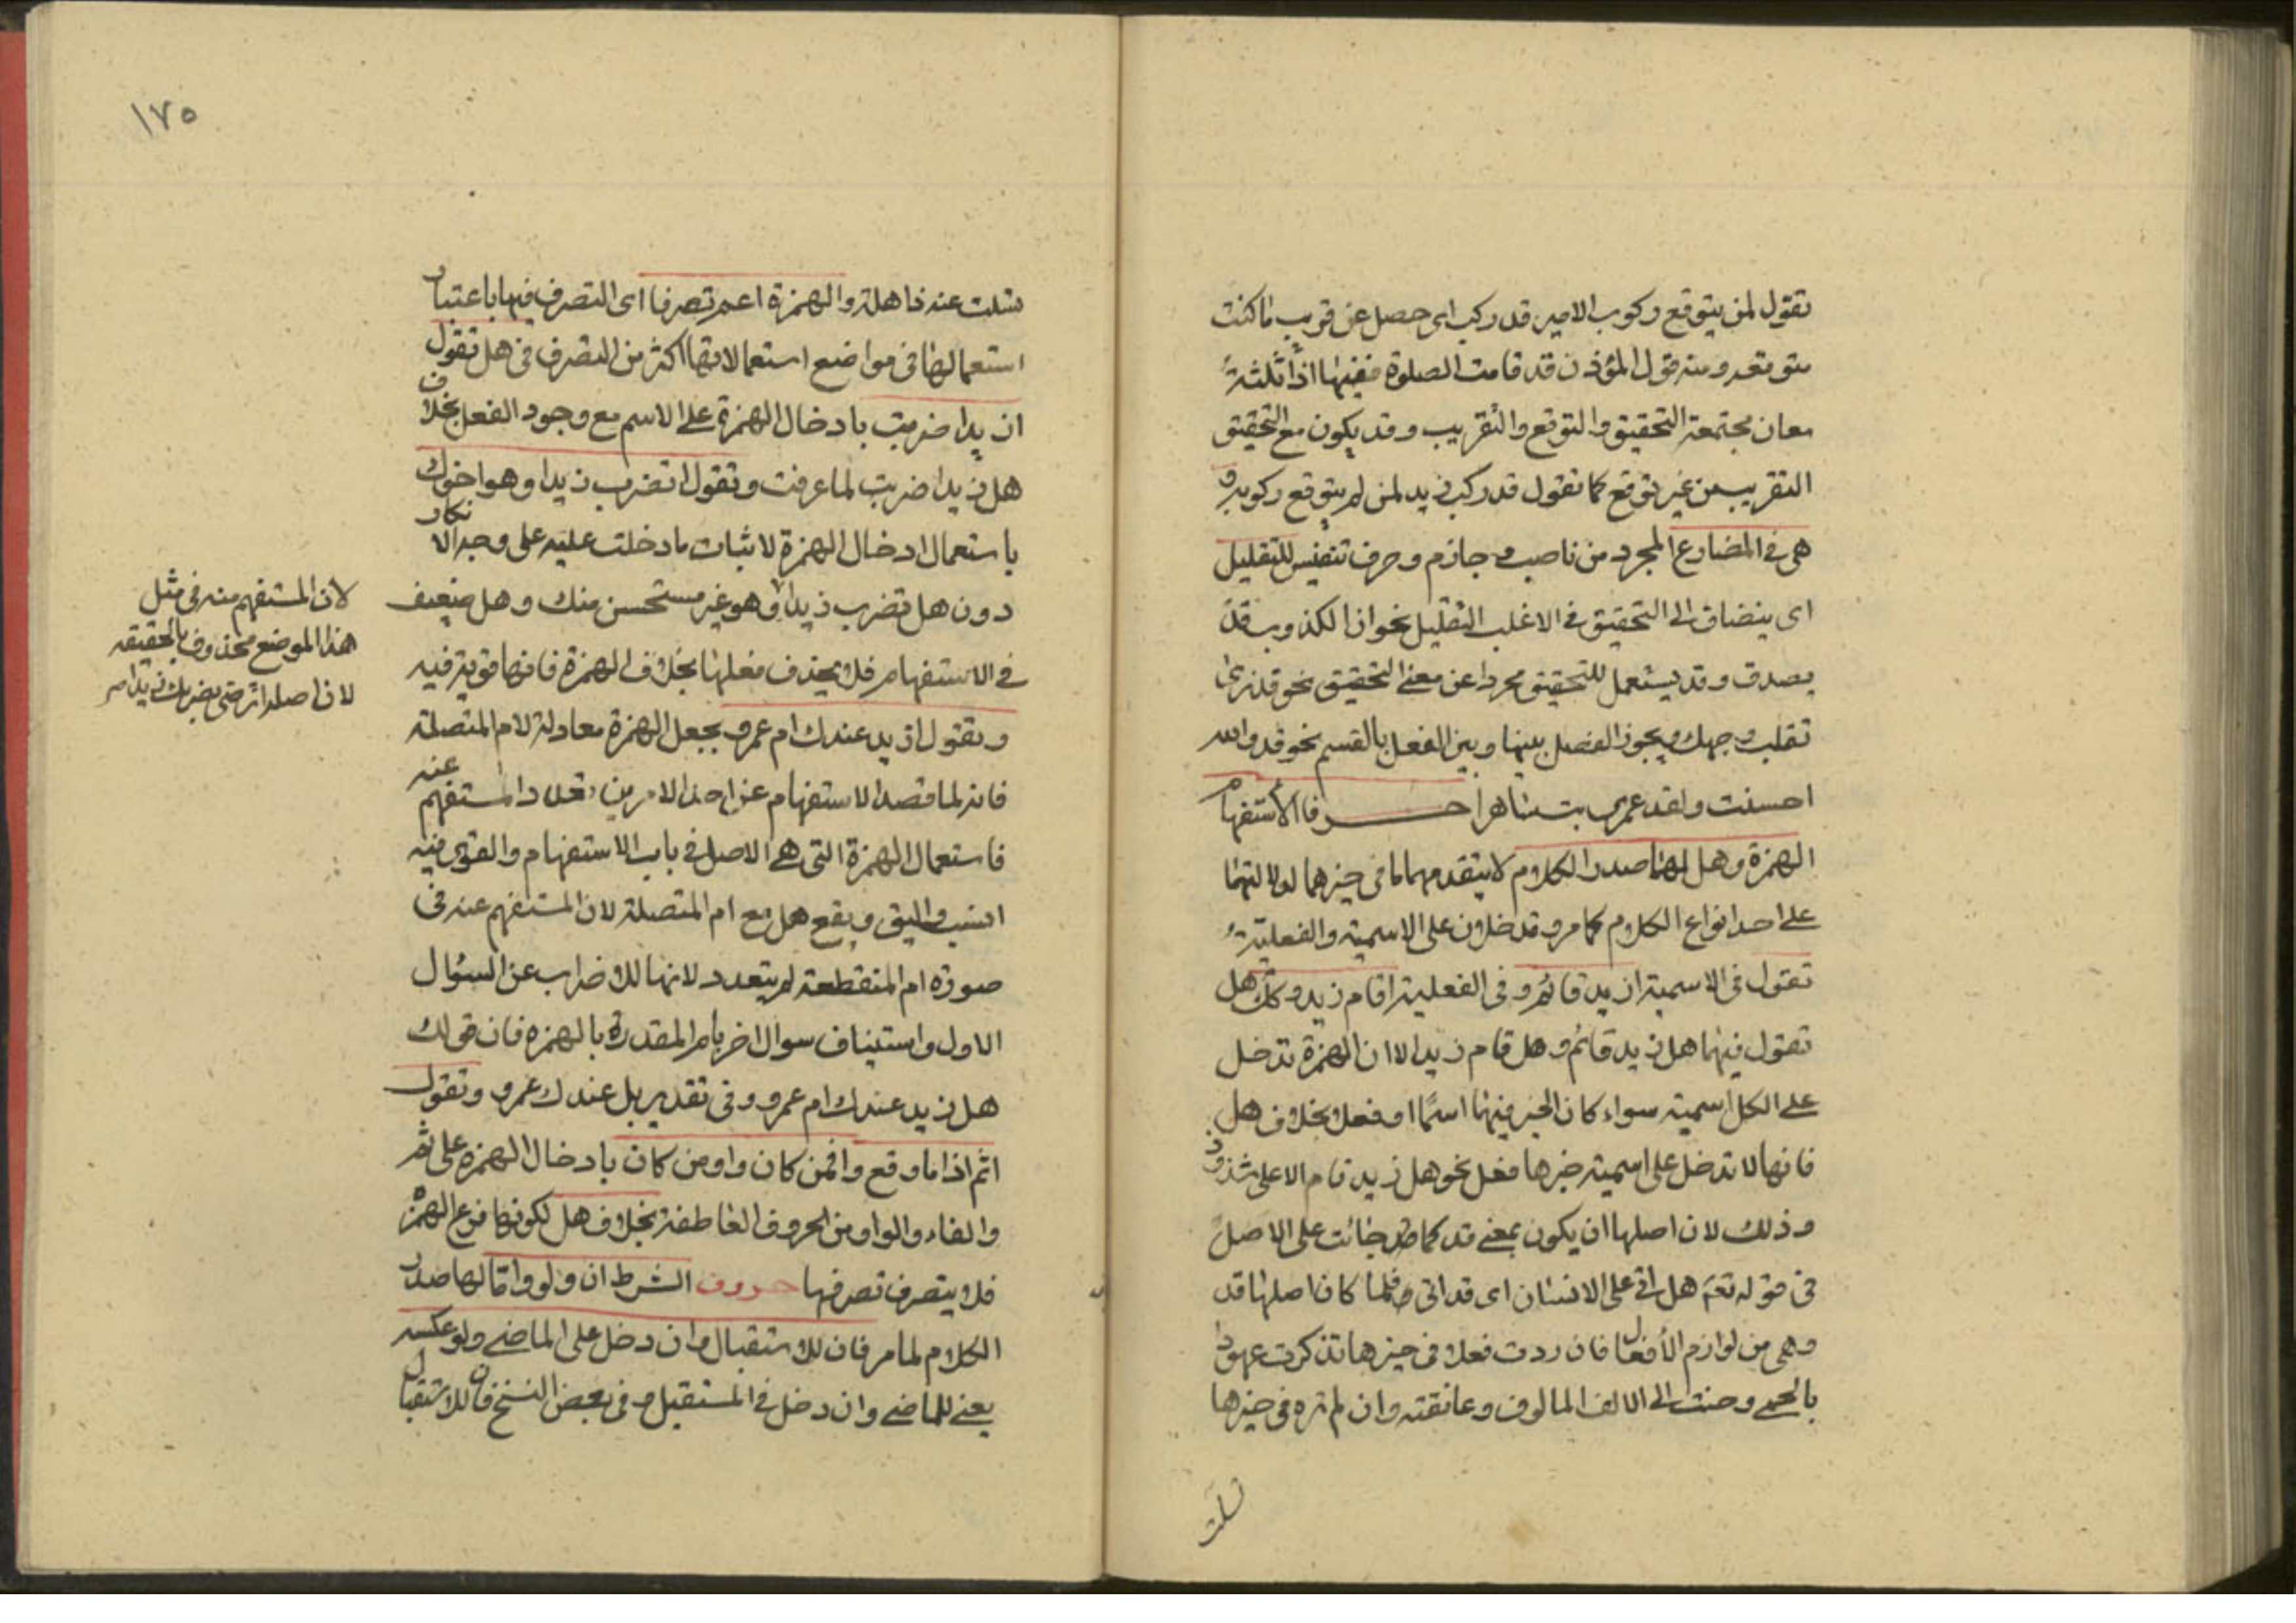 تقول لمن يتوقع ركوب الامير قد ركب اى حصل عن قريب ما كنت
متوقعه ومنه قول المؤذن قد قامت الصلوة ففيها اذا ثلثة
معان مجتمعة التحقيق والتوقع والتقريب وقد يكون مع التحقيق
التقريب من غير توقع كما تقول قد ركب زيد لمن لم يتوقع ركوبه و
هى فى المضارع المجرد من ناصب وجازم وحرف تنفيس للتقليل
اى ينضاف الى التحقيق فى الاغلب التقليل نحو ان الكذوب قد
يصدق وقد يستعمل للتحقيق مجردا عن معنى التحقيق نحو قد نرى
تقلب وجهك ويجوز الفصل بينها وبين الفعل بالقسم نحو قد والله
احسنت ولقد عمرى بت ساهرا حرفا الاستفهام
الهمزة وهل لهما صدر الكلام لا يتقدمهما ما فى حيزهما لدلالتهما
على احد انواع الكلام كما مر وتدخلان على الاسمية والفعلية
تقول فى الاسمية ازيد قائم وفى الفعلية اقام زيد وكذلك هل
تقول فيهما هل زيد قائم وهل قام زيد الا ان الهمزة تدخل
على الكل اسمية سواء كان الخبر فيها اسما او فعلا بخلاف هل
فانها لا تدخل على اسمية خبرها فعل نحو هل زيد قام الا على شذوذ
وذلك لان اصلها ان يكون بمعنى قد كما جائت على الاصل
فى قوله تعم هل اتى على الانسان اى قد اتى فلما كان اصلها قد
وهى من لوازم الافعال فان ردت فعلا فى حيزها تذكرت عهودا
بالحمى وحنت الى الالف المالوف وعانقته وان لم تره فى حيزها
تسلت
١٧٥
تسلت عنه ذاهلة والهمزة اعم تصرفا اى التصرف فيها باعتبار
استعمالها فى مواضع استعمالاتها اكثر من التصرف فى هل تقول
ازيدا ضربت بادخال الهمزة على الاسم مع وجود الفعل بخلاف
هل زيدا ضربت لما عرفت وتقول اتضرب زيدا وهو اخوك
باستعمال ادخال الهمزة لاثبات ما دخلت عليه على وجه الانكار
دون هل تضرب زيدا وهو غير مستحسن منك وهل ضعيف
فى الاستفهام فلا يحذف فعلها بخلاف الهمزة فانها قوية فيه
وتقول ازيد عندك ام عمرو بجعل الهمزة معادلة لام المتصلة
فانه لما قصد الاستفهام عن احد الامرين تعدد المستفهم عنه
فاستعمال الهمزة التى هى الاصل فى باب الاستفهام والقوى فيه
انسب واليق ويقع هل مع ام المتصلة لان المستفهم عنه فى
صورة ام المنقطعة لم يتعدد لانها للاضراب عن السؤال
الاول واستيناف سوال اخر بام المقدرة بالهمزه فان قولك
هل زيد عندك ام عمرو وفى تقدير بل عندك عمرو وتقول
اثم اذا ما وقع وافمن كان واومن كان بادخال الهمزه على ثم
والفاء والواو من الحروف العاطفة بخلاف هل لكونها فرع الهمزة
فلا يتصرف تصرفها حروف الشرط ان ولو واما لها صدر
الكلام لما مر فان للاستقبال وان دخل على الماضى ولو عكسه
يعنى للماضى وان دخل فى المستقبل وفى بعض النسخ فان للاستقبال
لان المستفهم منه فى مثل
هذا الموضع محذوف بالحقيقه
لان اصله اترضى بضربك زيدا